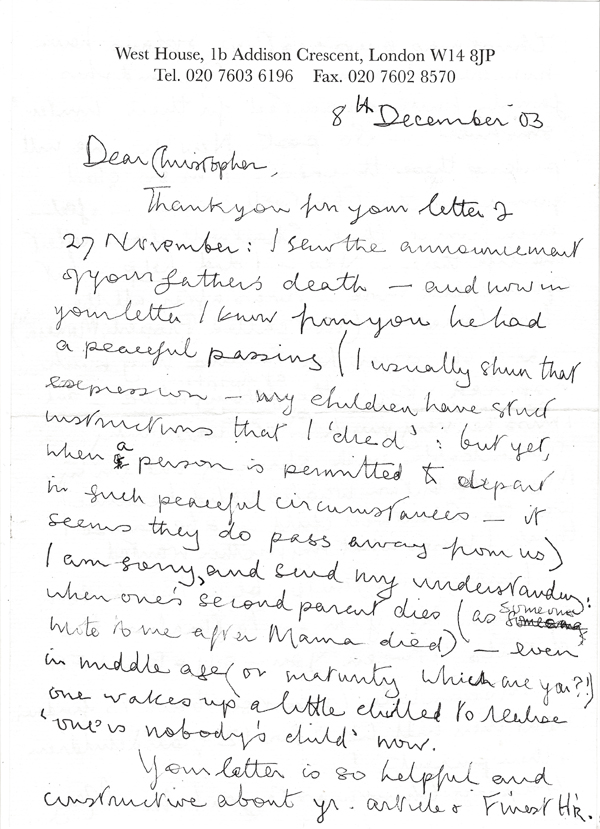 West House, 1b Addison Crescent, London W14 8JP
Tel. 020 7603 6196 Fax. 020 7602 8570
8th December '03
Dear Christopher,
Thank you for your letter of
27 November: I saw the announcement
of your father's death – and now in
your letter I know from you he had
a peaceful passing (I usually shun that
expression – my children have strict
instructions that I 'died': but yet,
when a person is permitted to depart
in such peaceful circumstances – it
seems they do pass away from us)
I am sorry, and send my understanding:
when one's second parent dies (as someone
wrote to me after Mama died) – even
in middle age (or maturity which are you?!)
one wakes up a little chilled to realise
'one is nobody's child' now.
Your letter is so helpful and
constructive about yr. article & Finest Hr.